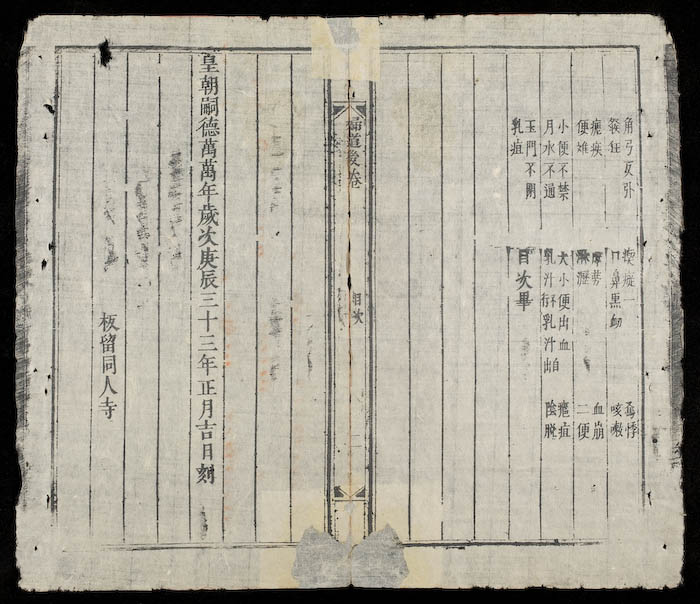 角弓反張 瘈瘲一 驚悸
發狂 口鼻黑衄 咳嗽
瘧疾 血崩
便難 淋瀝 二便
小便不禁 大小便出血 瘡疽
月水不通 乳汁不行 乳汁自出 陰脱
玉門不閉
乳疽
目次畢
婦道後卷
目次
二
皇朝嗣德萬萬年歲次庚辰三十三年正月吉日刻
板留同人寺